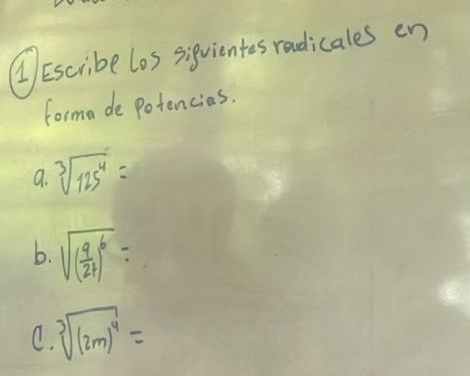 1) Escribe los siguientes radicales en
forma de potencias.
a. ∛(125⁴) =
b. √((9/21)⁶) =
c. ∛((2m)⁴) =